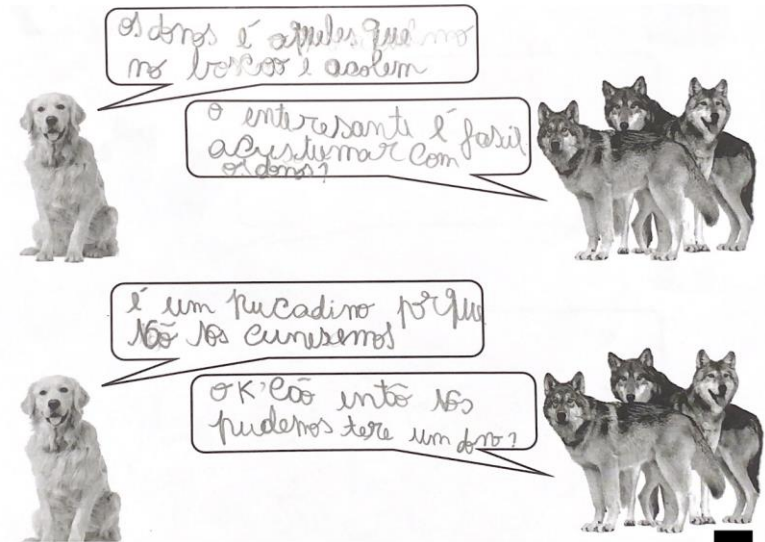 os donos é aqueles que
no e acolem
O enteresante é fasil
acustumar com
os donos?
é um pucadino porque
não nos cunesemos
OK'Cão intõ nós
pudemos tere um dono?